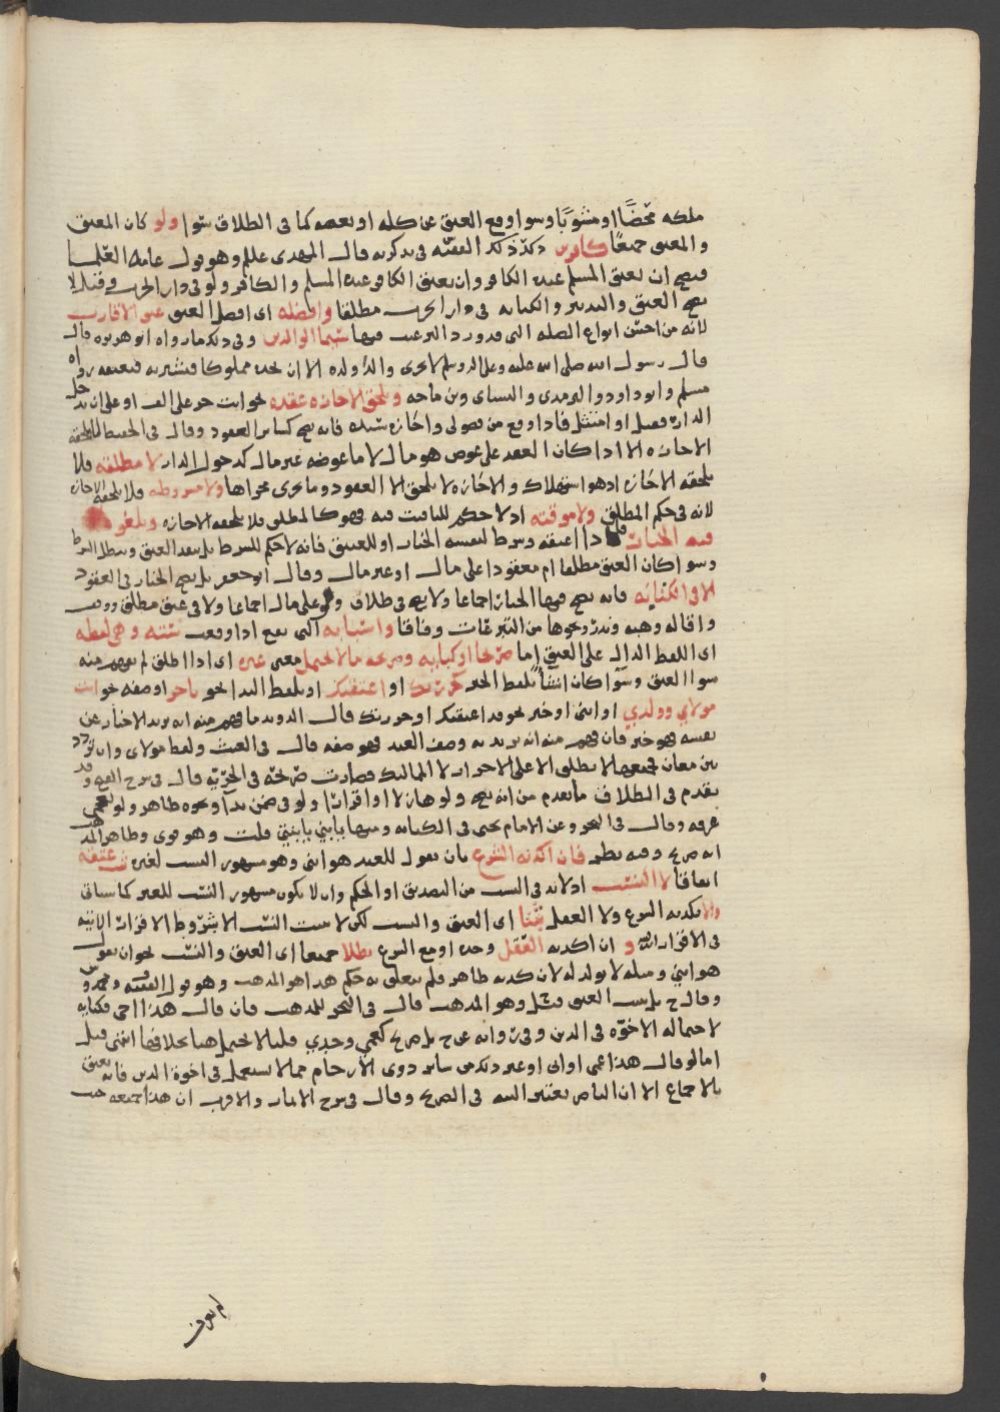 ملكه محضًا او مشوبًا وسوا وقع العتق عن كله او بعضه كما في الطلاق سوا ولو كان المعتق
والمعتق جميعًا كافرين ذكر ذلك الفقيه في تذكرته قال المهدي عللم وهو قول عامة العلما
فيصح ان يعتق المسلم عبده الكافر وان يعتق الكافر عبده المسلم والكافر ولو في دار الحرب وقيل لا
يصح العتق والتدبير والكتابه في دار الحرب مطلقا وافضله اى افضل العتق عتق الاقارب
لانه من احسن انواع الصله التى قد ورد الترغيب فيها سيما الوالدين وفي ذلك ما رواه ابو هريره قال
قال رسول الله صلى الله عليه وعلى اله وسلم لا يجزى والدًا ولده الا ان يجده مملوكا فيشتريه فيعتقه رواه
مسلم وابو داود والترمذي والنساى وبن ماجه وتلحق الاجازه عقده نحو انت حر على الف او على ان تدخل
الدار فقبل او امتثل فاذا وقع من فضولى واجازه سيده فانه يصح كساير العقود وقال في الحفيظ لا تلحقه
الاجازه الا اذا كان العقد على عوض هو مال لا ما عوضه غير مال كدخول الدار لا مطلقه فلا
تلحقه الاجازه اذ هو استهلاك والاجازه لا تلحق الا العقود وما يجرى مجراها ولا مشروطه فلا تلحقه الاجازه
لانه في حكم المطلق ولا موقته اذ لا حكم للتاقيت فيه فهو كالمطلق فلا تلحقه الاجازه ويلغو
فيه الخيار فاذا اعتقه وشرط لنفسه الخيار او للعتيق فانه لا حكم للشرط بل ينفذ العتق ويبطل الشرط
وسوا كان العتق مطلقا ام معقودا على مال او غير مال وقال ابو جعفر بل يصح الخيار في العقود
الا في الكتابه فانه يصح فيها الخيار اجماعا ولا يصح في طلاق ولو على مال اجماعا ولا في عتق مطلق ووقف
واقاله وهبه ونذر ونحوها من التبرعات وفاقا واسبابه التى يقع اذا وقعت سته وهى لفظه
اى اللفظ الدال على العتق إما صريحا او كنايه وصريحه ما لا يحتمل معنى غيره اى اذا اطلق لم يفهم منه
سوا العتق وسوا كان انشاءً بلفظ الخبر كحررتك او اعتقتك او بلفظ الندا نحو يا حر او صفه نحو انت
مولاي وولدي او ابنى او خبر نحو قد اعتقتك او حررتك قال الدوارى ما فهم منه انه يريد الاخبار عن
نفسه فهو خبر فان فهم منه انه يريد به وصف العبد فهو صفه قال في الغيث ولفظ مولاى وان تردد
بين معان فجميعها لا يطلق الا على الاحرار لا المماليك فصارت صريحه في الحريه قال في شرح الفتح وقد
تقدم في الطلاق ما تقدم من انه يصح ولو هازلا او اقرارا ولو في ضمن ندآ ونحوه ظاهر ولو بعجمى
عرفه وقال في البحر وعن الامام يحيى في الكنايه ومنها يا بنى يا بنتي قلت وهو قوى وظاهر المذهب
انه صريح وفيه نظر فان اكذبه الشرع بان يقول للعبد هو ابنى وهو مشهور النسب لغيره ثبت عتقه
اتفاقا لا النسب اذ لا بد في النسب من التصديق او الحكم وان لا يكون مشهور النسب للغير كما سياتى
والا يكذبه الشرع ولا العقل ثبتا اى العتق والنسب لكن لا يثبت النسب الا بشروط الاقرار الاتيه
في الاقرار و ان اكذبه العقل وحده او مع الشرع بطلا جميعا اى العتق والنسب نحو ان يقول
هو ابنى ومثله لا يولد له لان كذبه ظاهر فلم يتعلق به حكم هذا هو المذهب وهو قول الفقيه
وقال ح بل يثبت العتق وهو المذهب قال في البحر للمذهب فان قال هذا اخى فكنايه
لاحتماله الاخوّه في الدين وفي روايه عن ح بل صريح كعمي وجدي قلنا لا يحتمل هنا بخلافها انتهى قيل
اما لو قال هذا عمى او ابى او غير ذلك من ساير ذوى الارحام مما لا يستعمل في اخوة الدين فانه يعتق
بالاجماع الا ان الناصر يعتبر النيه في الصريح وقال في شرح الاثمار والاقرب ان هذا جميعه حيث
لم يعرف